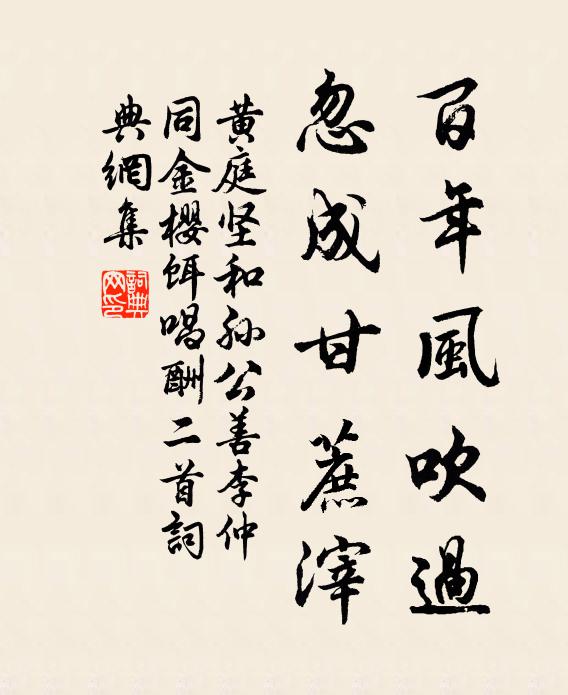 百年風吹過
忽成甘蔗滓
黄庭坚和孙公善李仲
同金櫻餌唱酬二首詞
典網集
詞典网印